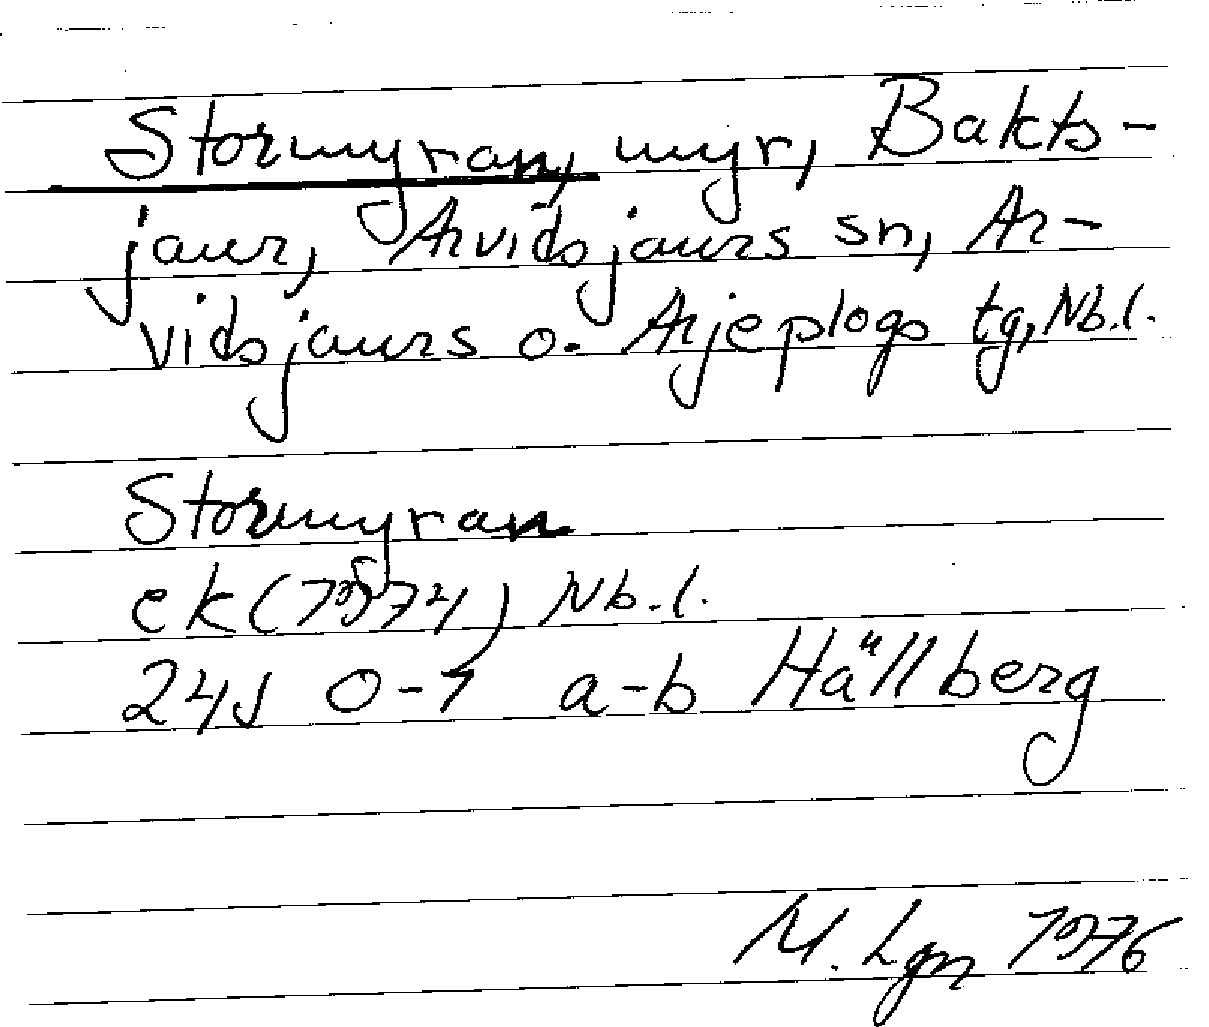 Stormyran, myr, Bakts-
jaur, Arvidsjaurs sn, Ar-
vidsjaurs o. Arjeplogs tg, Nb.l.
Stormyran
ek (1974) Nb.l.
24J 0-1 a-b Hällberg
M. Lgn 1976